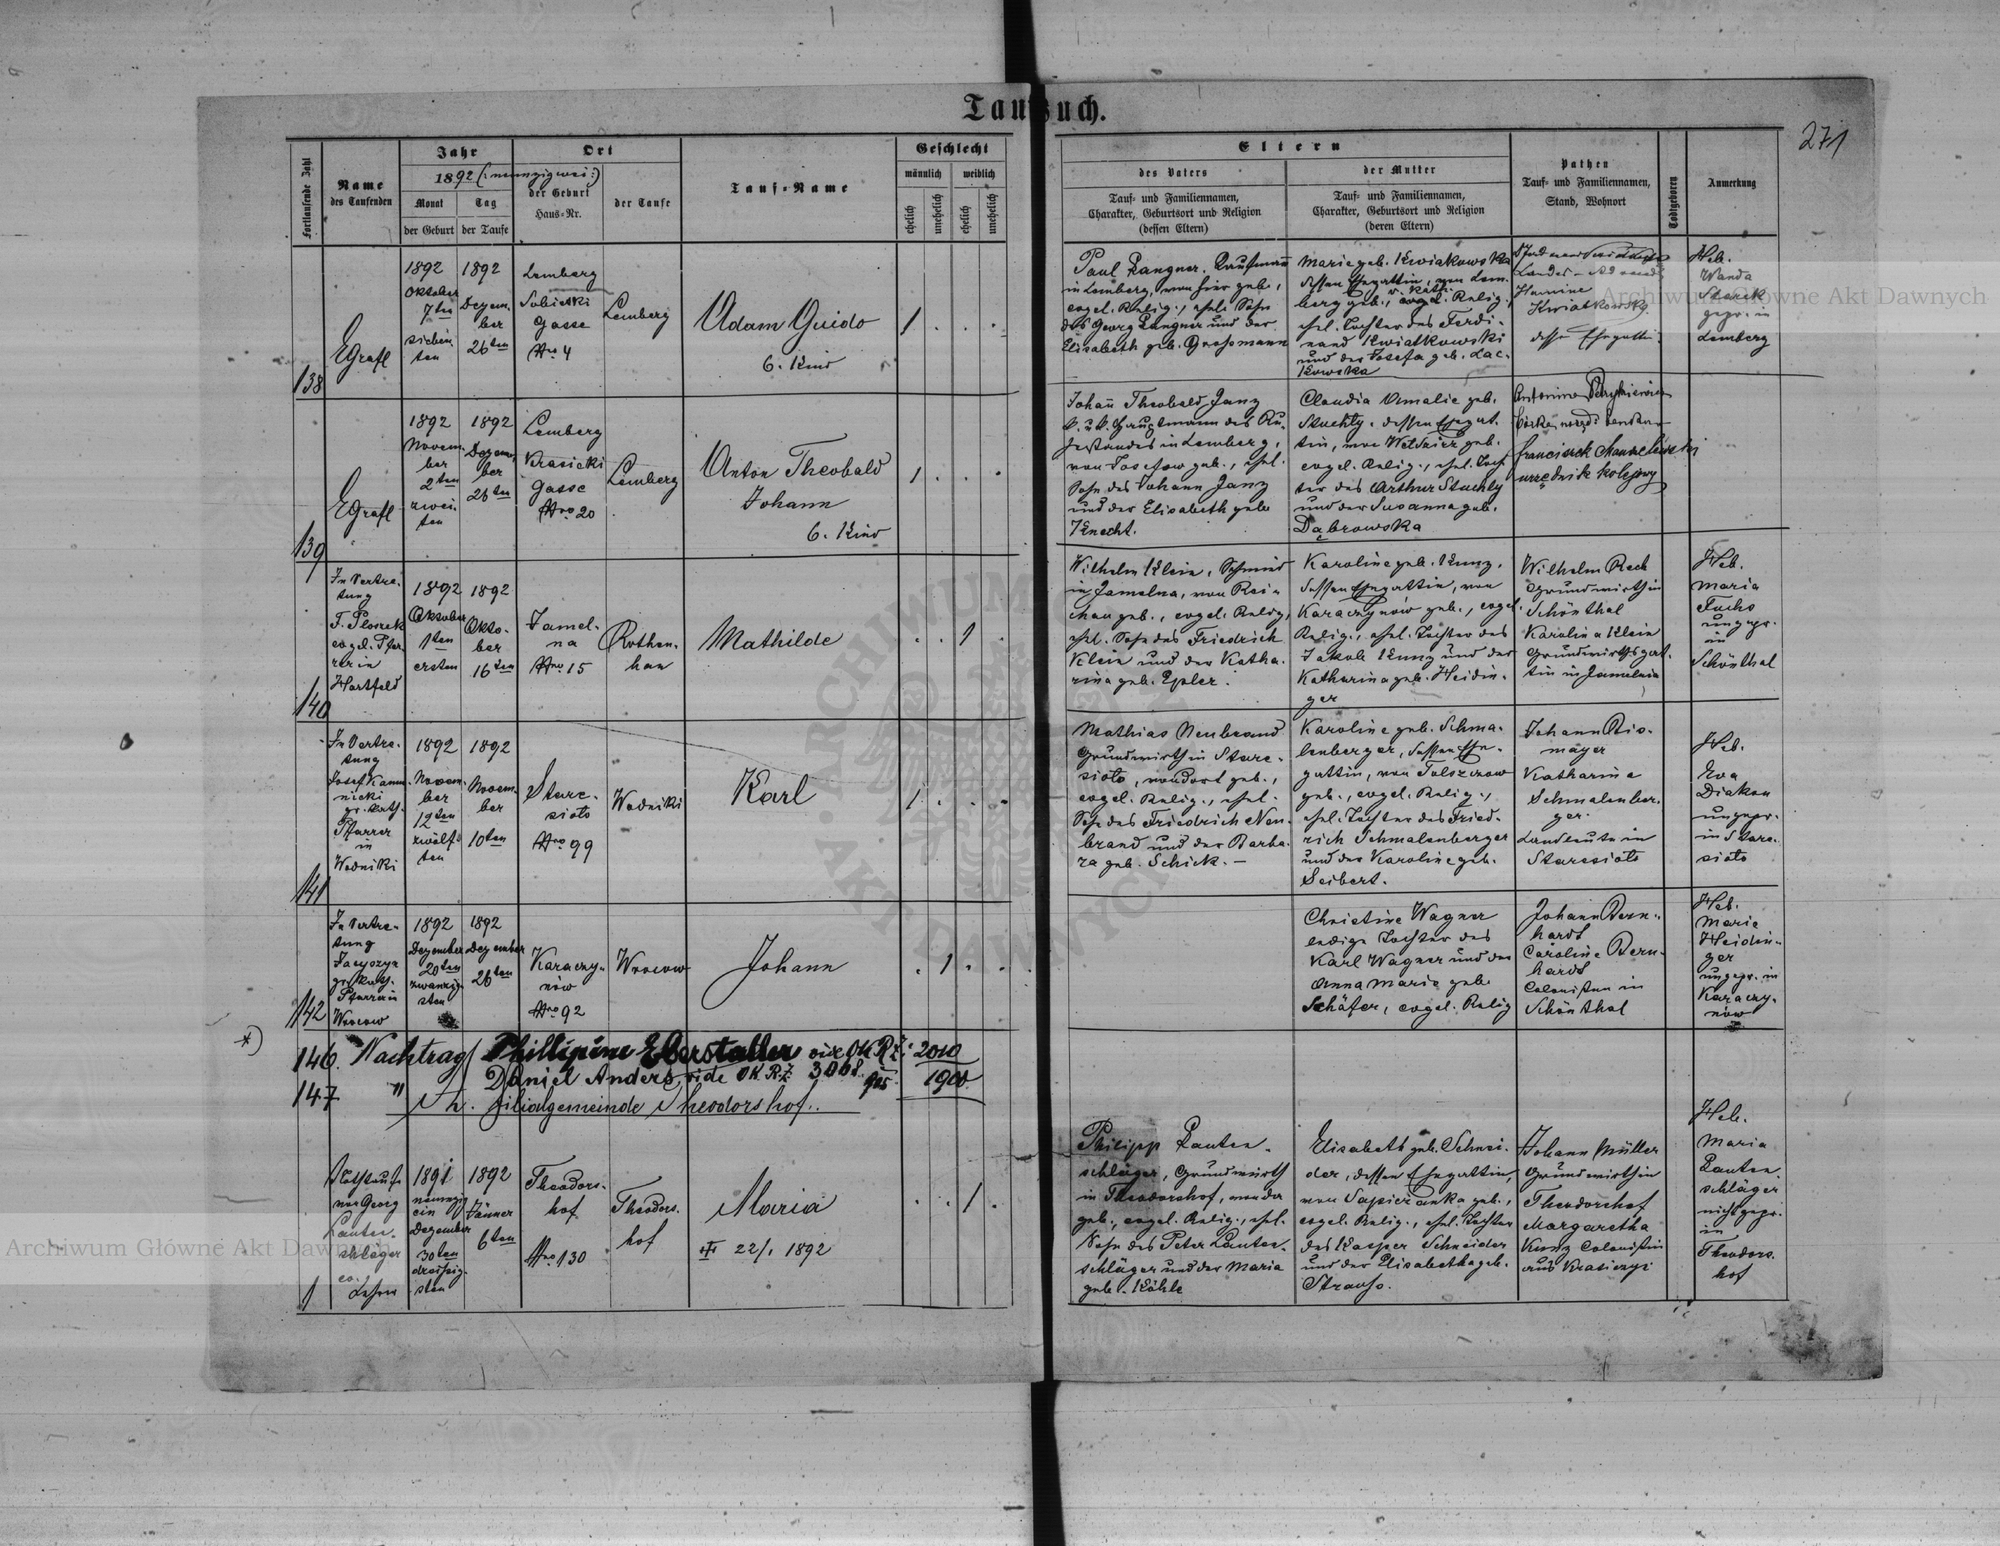 Taufbuch.
271
Fortlaufende Zahl
Name
des Taufenden
Jahr
1892 (: neunzigzwei :)
Monat
der Geburt
Tag
der Taufe
Ort
der Geburt
Haus-Nr.
der Taufe
Tauf-Name
Geschlecht
männlich
weiblich
ehelich
unehelich
ehelich
unehelich
Eltern
des Vaters
Tauf- und Familiennamen,
Charakter, Geburtsort und Religion
(dessen Eltern)
der Mutter
Tauf- und Familiennamen,
Charakter, Geburtsort und Religion
(deren Eltern)
Pathen
Tauf- und Familiennamen,
Stand, Wohnort
Todtgeboren
Anmerkung
138
EGrafl
1892
Oktober
7ten
sieben
ten
1892
Dezem-
ber
26ten
Lemberg
Sobieski
Gasse
Nro 4
Lemberg
Adam Guido
6. Kind
1
Paul Langner, Kaufmann
in Lemberg, von hier geb.,
evgl. Relig., ehel. Sohn
des Georg Langner und der
Elisabeth geb. Grossmann
Marie geb. Kwiakowska
dessen Ehegattin, von Lem-
berg geb., evgl. Relig.,
ehel. Tochter des Ferdi-
nand Kwiatkowski
und der Josefa geb. Lac-
kowska
Kwiatkowsky
dessen Ehegattin
Heb.
Wanda
Starck
gepr. in
Lemberg
139
EGrafl
1892
Novem-
ber
2ten
zwei-
ten
1892
Dezem-
ber
26ten
Lemberg
Krasicki
Gasse
Nro 20
Lemberg
Anton Theobald
Johann
6. Kind
1
Johann Theobald Janz
k. u. k. Hauptmann des Ru-
hestandes in Lemberg,
von Josefow geb., ehel.
Sohn des Johann Janz
und der Elisabeth geb.
Knecht.
Claudia Amalie geb.
Stuchly, dessen Ehegat-
tin, von geb.
evgl. Relig., ehel. Toch-
ter des Arthur Stuchly
und der Susanna geb.
Dąbrowska
Antonina
Franciszek
urzędnik kolejowy
140
In Vertre-
tung
F. Ploszek
evgl. Pfar-
rer in
Hartfeld
1892
Oktober
1ten
ersten
1892
Okto-
ber
16ten
Jamel-
na
Nro 15
Rothen-
han
Mathilde
1
Wilhelm Klein, Schmied
in Jamelna, von Rei-
chau geb., evgl. Relig.,
ehl. Sohn des Friedrich
Klein und der Katha-
rina geb. Epler.
Karoline geb. Kunz,
dessen Ehegattin, von
Karaczynów geb., evgl.
Relig., ehel. Tochter des
Jakob Kunz und der
Katharina geb. Heidin-
ger
Wilhelm Reck
Grundwirth in
Schönthal
Karolina Klein
Grundwirthsgat-
tin in Jamelna
Heb.
Maria
Fuchs
ungepr.
in
Schönthal
141
In Vertre-
tung
Josef Kamie-
nicki
gr. kath.
Pfarrer
in
Wodniki
1892
Novem-
ber
12ten
zwölf-
ten
1892
Novem-
ber
10ten
Stare-
sioło
Nro 99
Wodniki
Karl
1
Mathias Neubrand
Grundwirth in Stare-
sioło, von dort geb.,
evgl. Relig., ehel.
Sohn des Friedrich Neu-
brand und der Barba-
ra geb. Schick. —
Karoline geb. Schma-
lenberger, dessen Ehe-
gattin, von
geb., evgl. Relig.,
ehel. Tochter des Fried-
rich Schmalenberger
und der Karoline geb.
Seibert.
Johann Bis-
mayer
Katharina
Schmalenber-
ger
Landleute in
Staresioło
Heb.
Eva
Diakon
ungepr.
in Stare-
sioło
142
In Vertre-
tung
gr. kath.
Pfarrer in
Wrocow
1892
Dezember
20ten
zwanzig-
sten
1892
Dezember
26ten
Karaczy-
nów
Nro 92
Wrocow
Johann
1
Christine Wagner
ledige Tochter des
Karl Wagner und der
Anna Maria geb.
Schäfer, evgl. Relig
Johann Bern-
hardt
Caroline Bern-
hardt
Colonisten in
Schönthal
Heb.
Maria
Heidin-
ger
ungepr. in
Karaczy-
nów
*)
146. Nachtrag Phillipine Eberstaller vide OKRZ: 2010
147 " Daniel Anders, vide OKRZ 3008 905 1908
Filialgemeinde Theodorshof.
1
Nothtaufe
von Georg
Lauten-
schläger
ev.
Lehrer
1891
neunzig
ein
Dezember
30ten
dreißig-
sten
1892
Jänner
6ten
Theodors-
hof
Nro 130
Theodors-
hof
Maria
22/1 1892
1
Philipp Lauten-
schläger, Grundwirth
in Theodorshof, von da
geb., evgl. Relig., ehel.
Sohn des Peter Lauten-
schläger und der Maria
geb. Köhle
Elisabeth geb. Schnei-
der, dessen Ehegattin,
von Sapieżanka geb.,
evgl. Relig., ehel. Tochter
des Kasper Schneider
und der Elisabetha geb.
Strauss.
Johann Müller
Grundwirth in
Theodorshof
Margaretha
Kunz Colonistin
aus Krasiczyn
Heb.
Maria
Lauten-
schläger
nicht gepr.
in
Theodors-
hof
Archiwum Główne Akt Dawnych
Archiwum Główne Akt Dawnych
ARCHIWUM GŁÓWNE AKT DAWNYCH